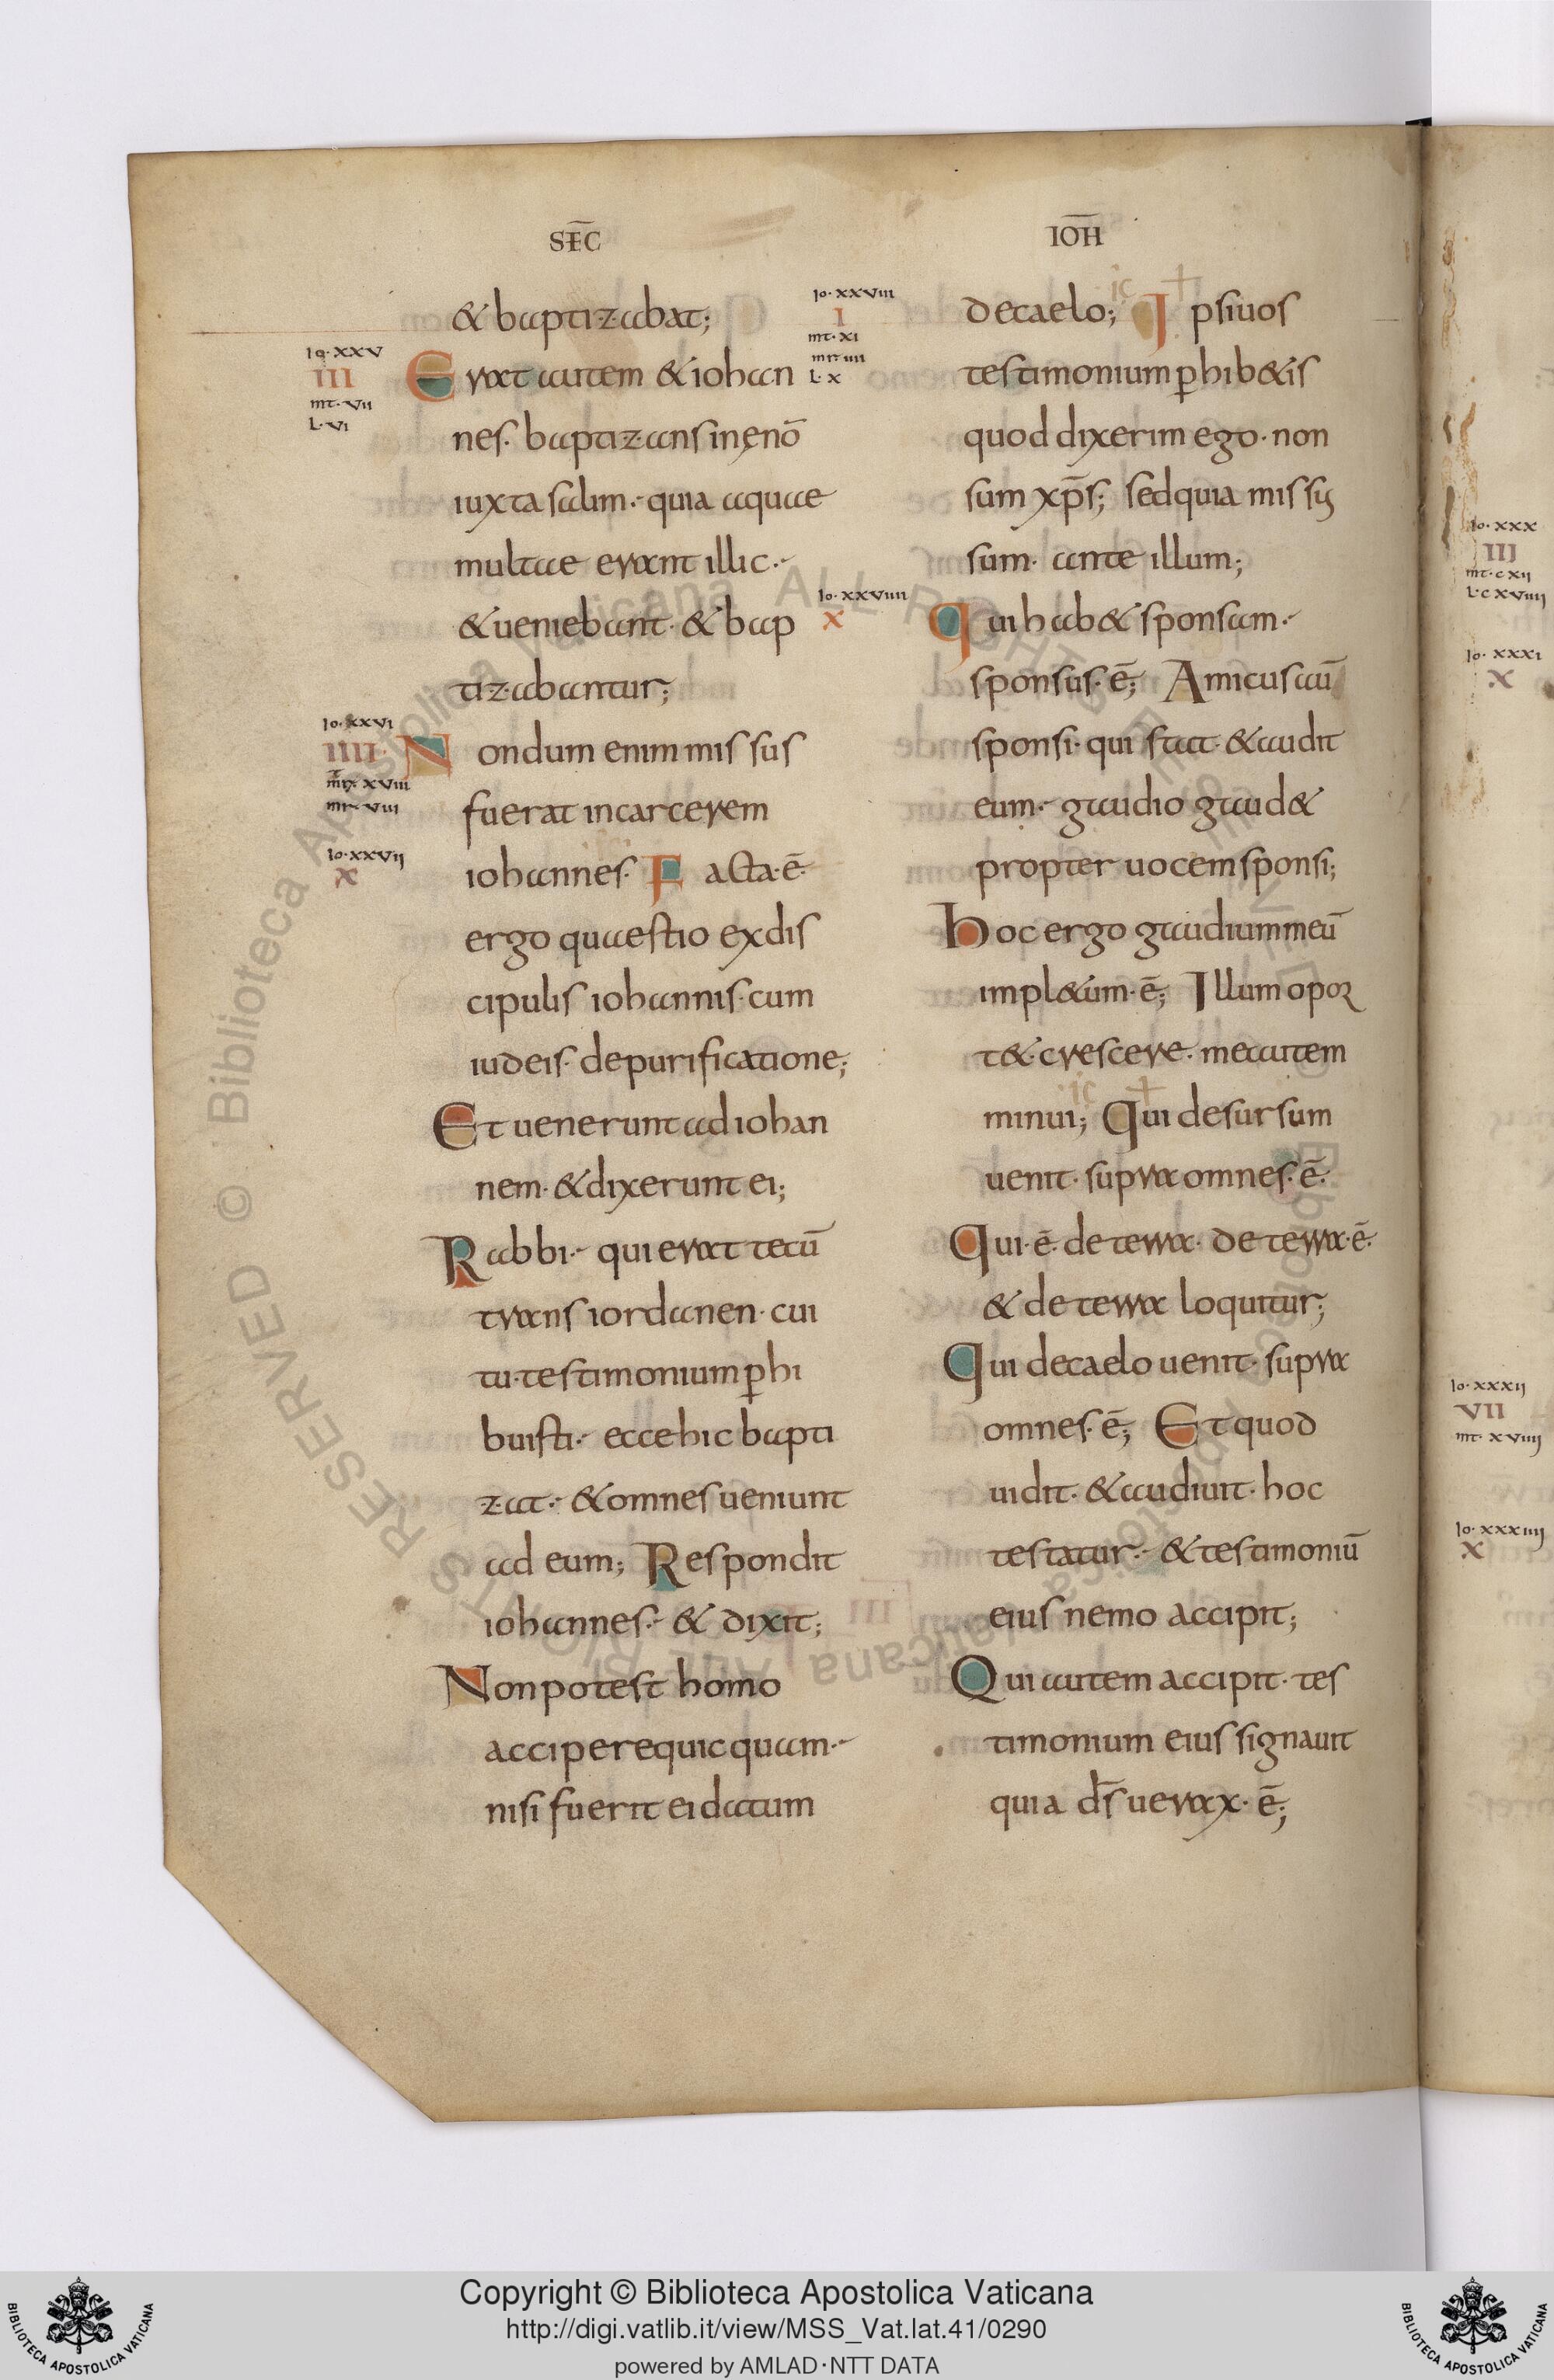 SEC̅
IO̅H
& baptizabat;
Io·xxv
III
mt·vii
L·vi
Erat autem & iohan
nes· baptizans in ęnō
iuxta salim· quia aquae
multae erant illic·
& ueniebant· & bap
tizabantur;
Io·xxvi
IIII·
mt· xviii
mr· viii
Nondum enim missus
fuerat in carcerem
Io·xxvii
x
iohannes· Facta·ē·
ergo quaestio ex dis
cipulis iohannis· cum
iudeis· de purificatione;
Et uenerunt ad iohan
nem· & dixerunt ei;
Rabbi· qui erat tecū
trans iordanen· cui
tu· testimonium p̱hi
buisti· ecce hic bapti
zat· & omnes ueniunt
ad eum; Respondit
iohannes· & dixit;
Non potest homo
accipere quicquam·
nisi fuerit ei datum
Io·xxviii
I
mt·xi
mr iiii
L·x
de caelo; Ipsi uos
testimonium p̱hib&is
quod dixerim ego· non
sum xp̅s; sed quia missus
sum· ante illum;
Io·xxviiii
x
Qui hab& sponsam·
sponsus·ē; Amicus aū
sponsi· qui stat· & audit
eum· gaudio gaud&
propter uocem sponsi;
Hoc ergo gaudium meū
impl&um·ē; Illum opor
t&· crescere· me autem
minui; Qui desursum
uenit· supra omnes·ē·
Qui·ē· de terra· de terra·ē·
& de terra loquitur;
Qui de caelo uenit· supra
omnes·ē; Et quod
uidit· & audiuit· hoc
testatur· & testimoniū
eius nemo accipit;
Qui autem accipit· tes
timonium eius signauit
quia d̅s uerax·ē;
Io·xxx
III
mt·cxii
L·cxviiii
Io·xxxi
x
Io·xxxii
VII
mt·xviiii
Io·xxxiiii
x
© Biblioteca Apostolica Vaticana ALL RIGHTS RESERVED
Copyright © Biblioteca Apostolica Vaticana
http://digi.vatlib.it/view/MSS_Vat.lat.41/0290
powered by AMLAD·NTT DATA
BIBLIOTECA APOSTOLICA VATICANA
BIBLIOTECA APOSTOLICA VATICANA